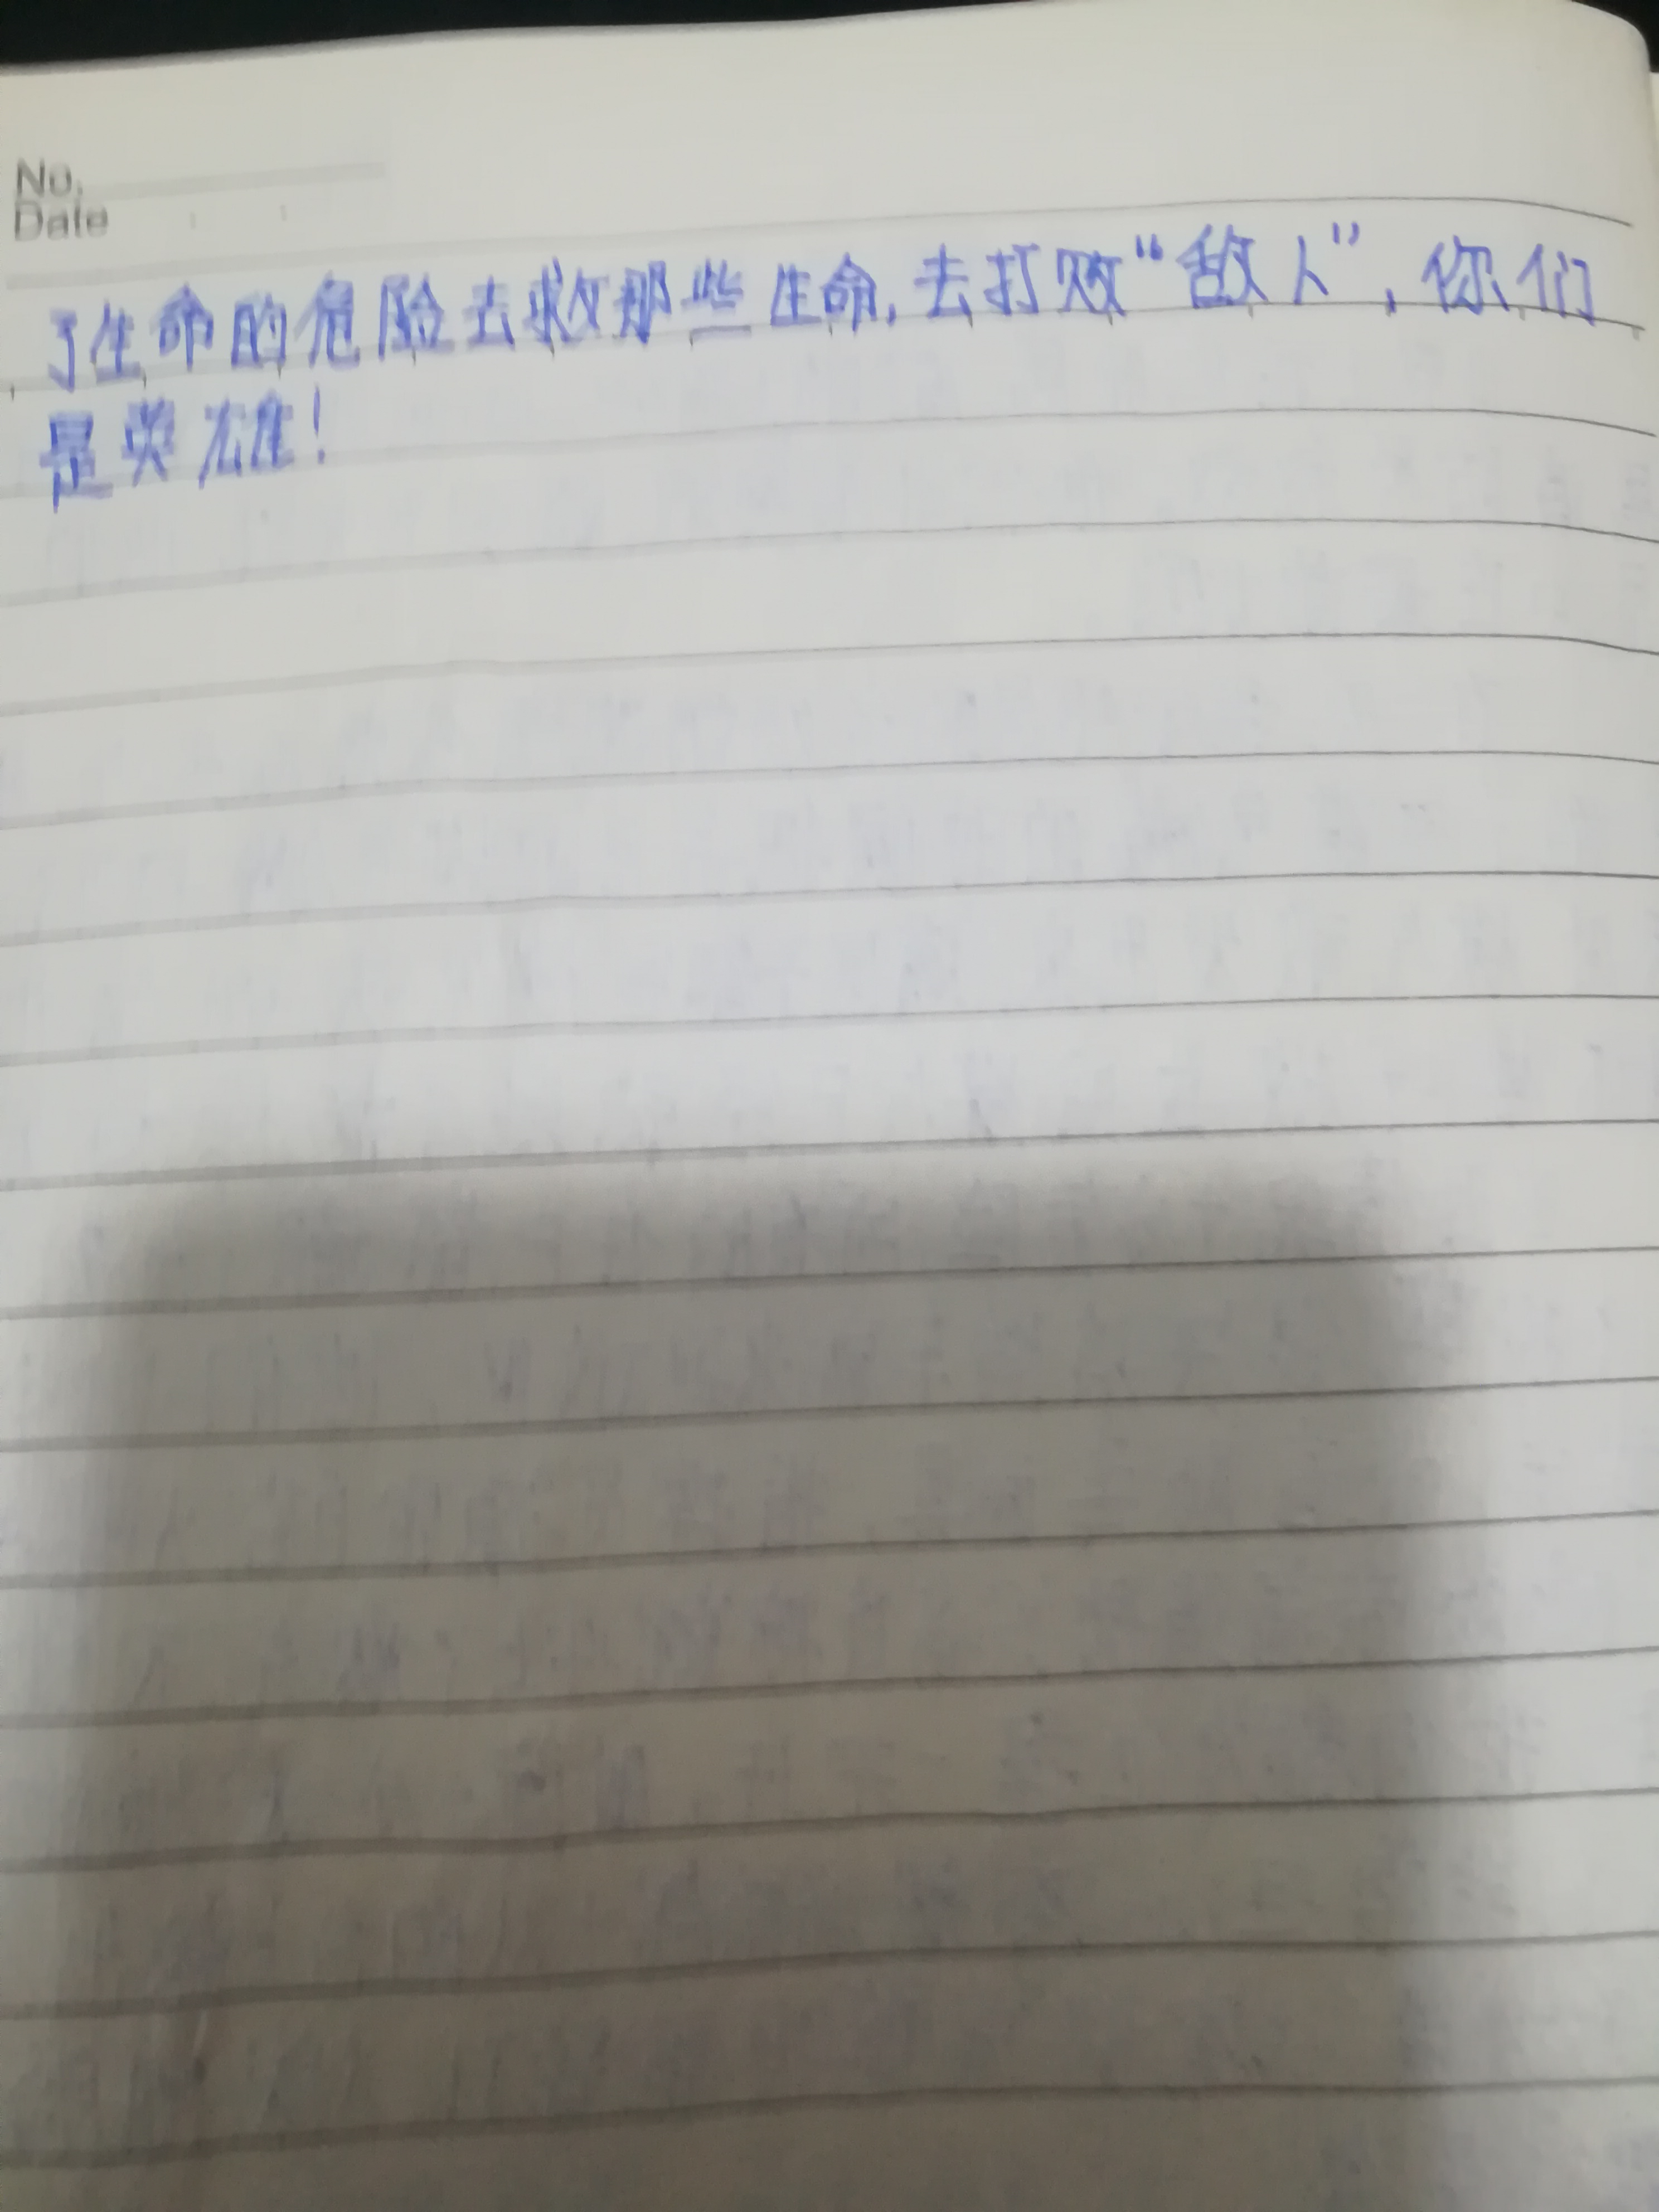 No.
Date
了生命的危险去救那些生命,去打败“敌人”,你们
是英雄!